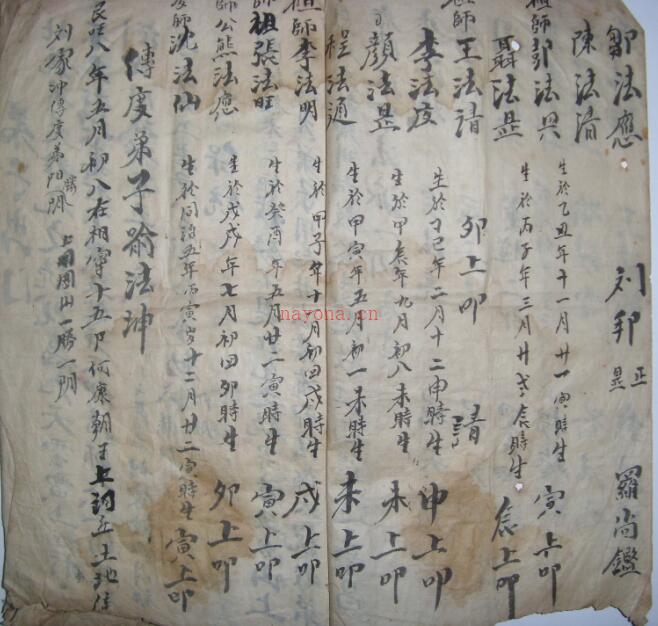 鄒法應 刘邦 正昱 羅尚鑑
陳法清
祖師郭法興 生於乙丑年十一月廿一寅時生 寅上叩
聶法昰 生於丙子年三月廿 辰時生 辰上叩
祖師王法清 卯上叩 請
李法度 生於丁巳年二月十二申時生 申上叩
顏法昰 生於甲辰年九月初八未時生 未上叩
程法通 生於甲寅年五月初一未時生 未上叩
祖師李法明 生於甲子年十 月初四戌時生 戌上叩
師祖張法旺 生於癸酉年五月廿二寅時生 寅上叩
師公熊法應 生於戊戌年七月初四卯時生 卯上叩
師沈法仙 生於同治五年丙寅岁十二月廿二寅時生 寅上叩
傳度弟子喻法坤
民 八年五月初八在相 十五 何 朝王上 五土地
刘家冲傳度弟 勝 一勝一明
nayona.cn